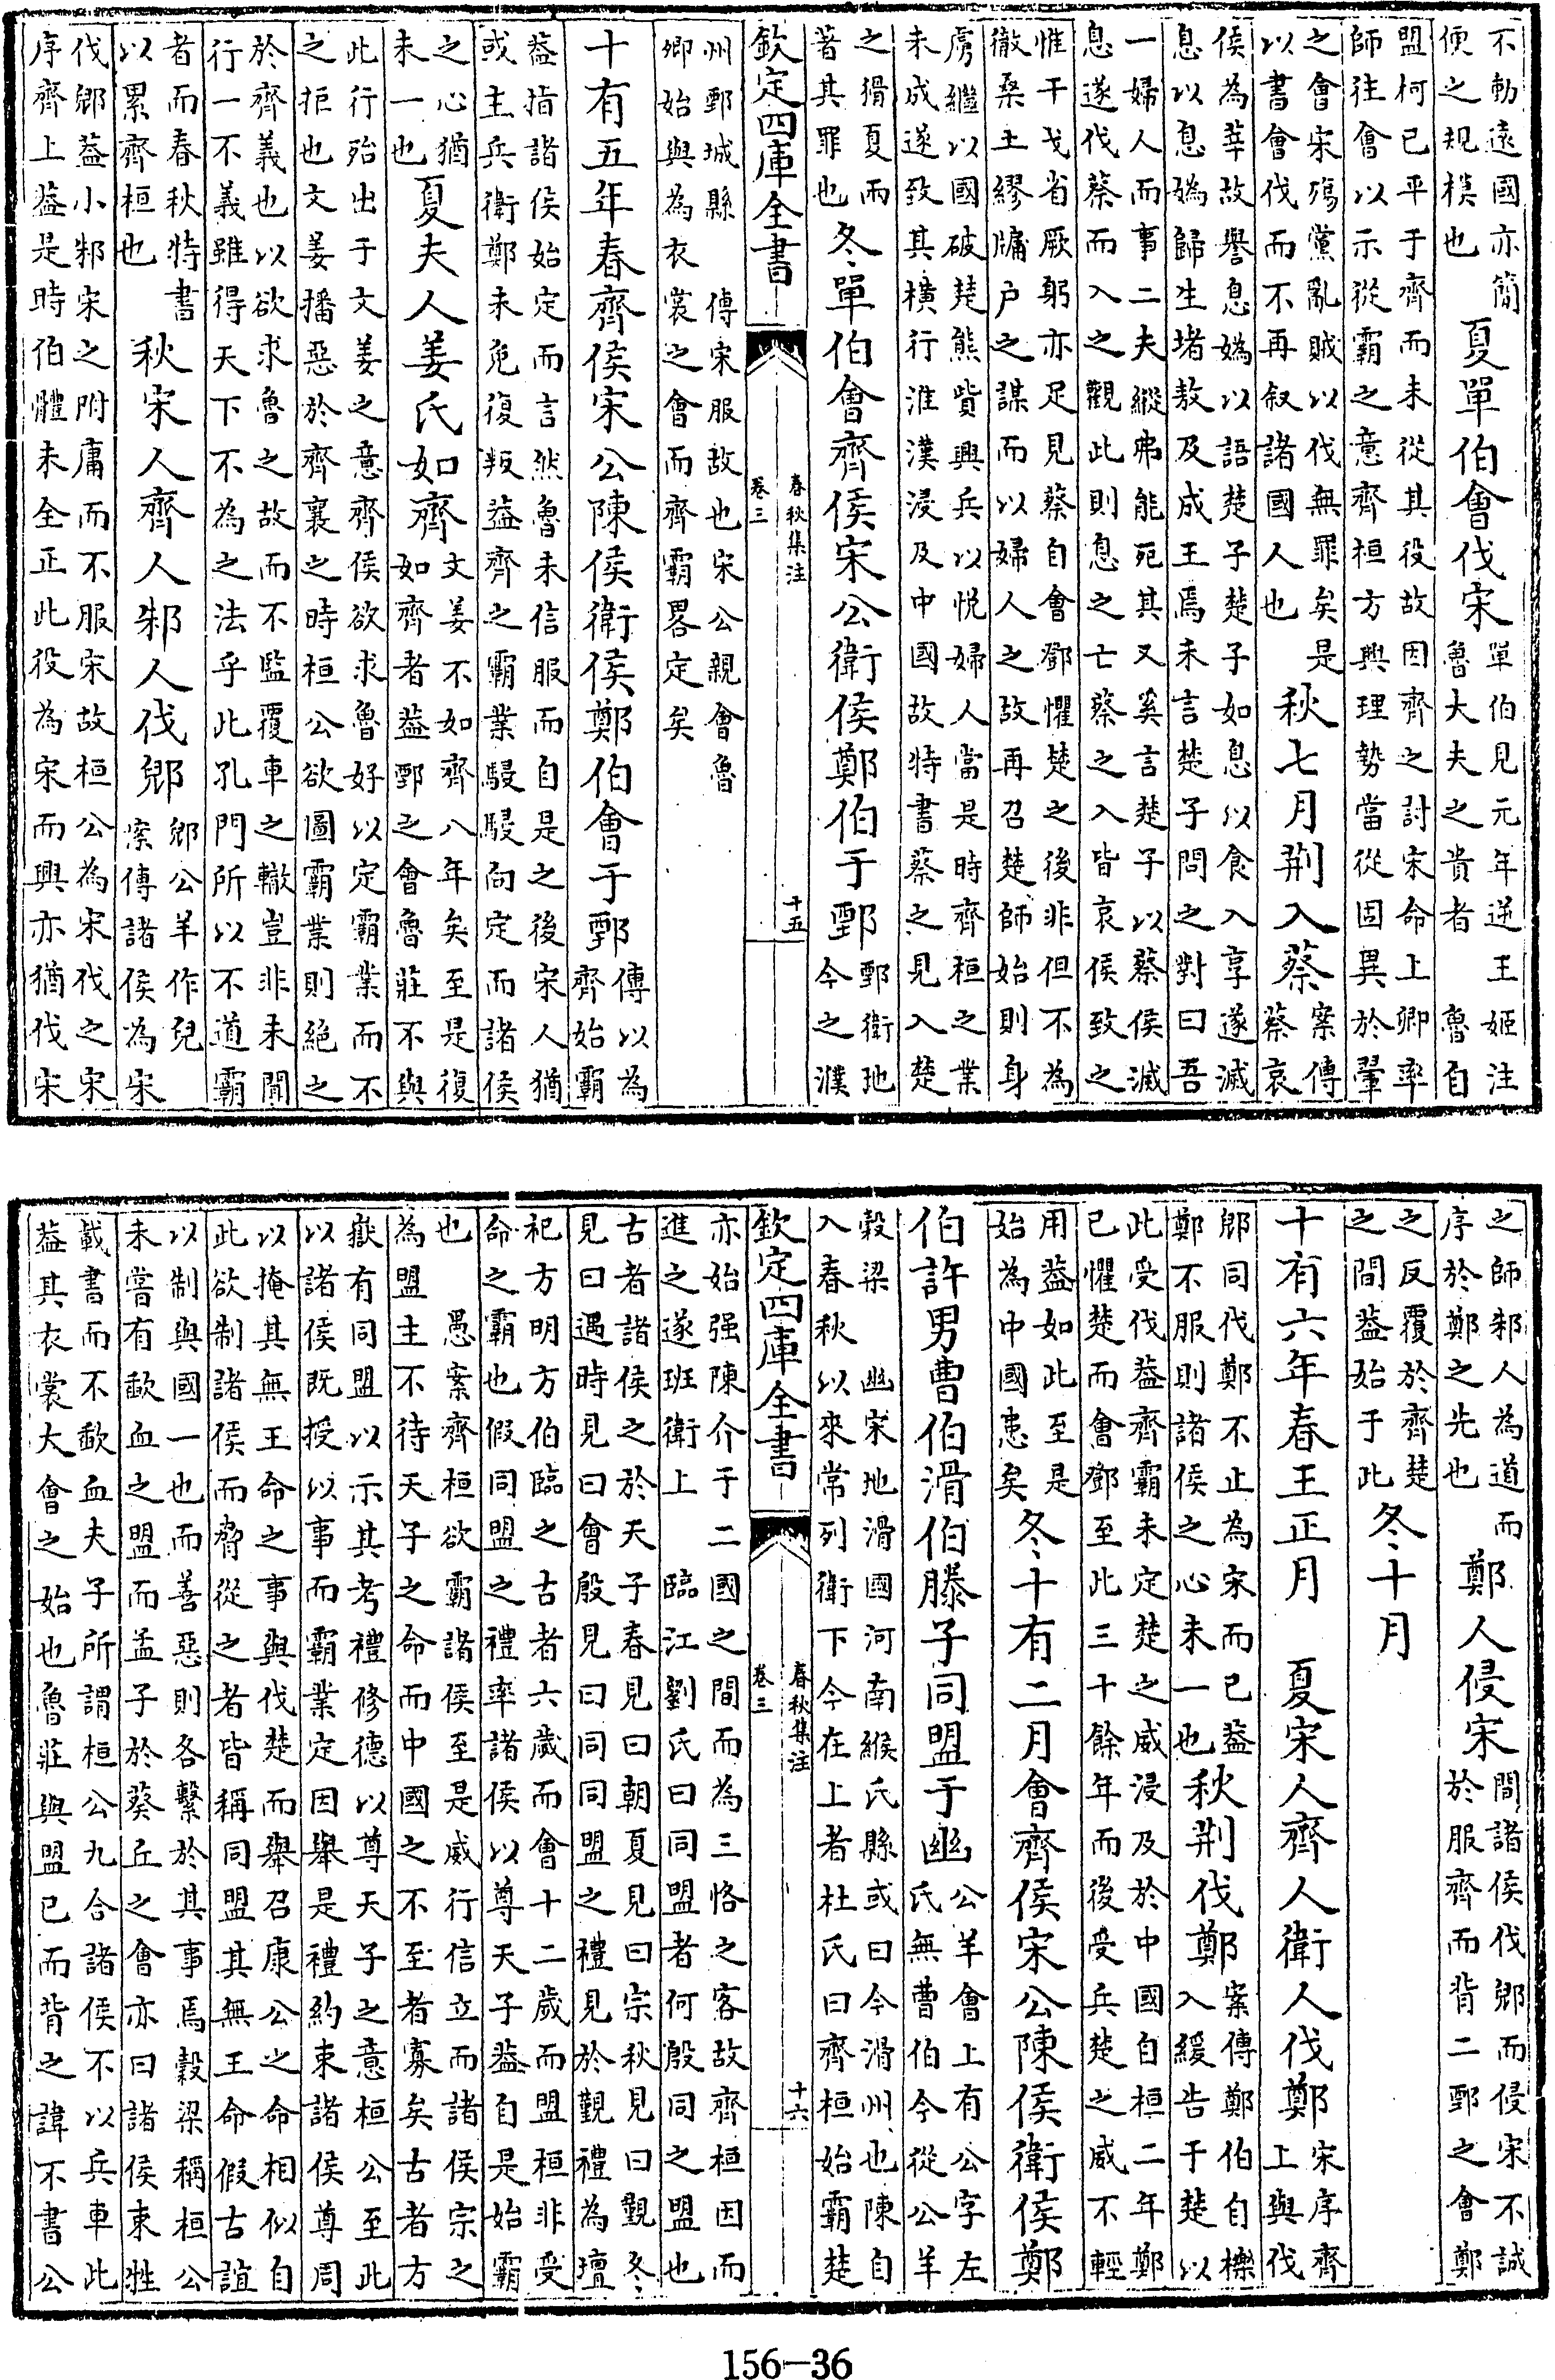 不動遠國亦簡
便之規模也
夏單伯會伐宋
單伯見元年逆王姬注
魯大夫之貴者　魯自
盟柯已平于齊而未從其役故因齊之討宋命上卿率
師往會以示從霸之意齊桓方興理勢當從固異於翬
之會宋殤黨亂賊以伐無罪矣是
以書會伐而不再叙諸國人也
秋七月荆入蔡
案傳
蔡哀
侯為莘故譽息媯以語楚子楚子如息以食入享遂滅
息以息媯歸生堵敖及成王焉未言楚子問之對曰吾
一婦人而事二夫縱弗能死其又奚言楚子以蔡侯滅
息遂伐蔡而入之觀此則息之亡蔡之入皆哀侯致之
惟干戈省厥躬亦足見蔡自會鄧懼楚之後非但不為
徹桑土繆牖户之謀而以婦人之故再召楚師始則身
虜繼以國破楚熊貲興兵以悦婦人當是時齊桓之業
未成遂致其横行淮漢浸及中國故特書蔡之見入楚
之猾夏而
著其罪也
冬單伯會齊侯宋公衛侯鄭伯于鄄
鄄衛地
今之濮
欽定四庫全書
春秋集注
卷三
十五
州鄄城縣　傳宋服故也宋公親會魯
卿始與為衣裳之會而齊霸畧定矣
十有五年春齊侯宋公陳侯衛侯鄭伯會于鄄
傳以為
齊始霸
葢指諸侯始定而言然魯未信服而自是之後宋人猶
或主兵衛鄭未免復叛葢齊之霸業駸駸向定而諸侯
之心猶
未一也
夏夫人姜氏如齊
文姜不如齊八年矣至是復
如齊者葢鄄之會魯莊不與
此行殆出于文姜之意齊侯欲求魯好以定霸業而不
之拒也文姜播惡於齊襄之時桓公欲圖霸業則絶之
於齊義也以欲求魯之故而不監覆車之轍豈非未聞
行一不義雖得天下不為之法乎此孔門所以不道霸
者而春秋特書
以累齊桓也
秋宋人齊人邾人伐郳
郳公羊作兒
案傳諸侯為宋
伐郳葢小邾宋之附庸而不服宋故桓公為宋伐之宋
序齊上葢是時伯體未全正此役為宋而興亦猶伐宋
之師邾人為道而
序於鄭之先也
鄭人侵宋
間諸侯伐郳而侵宋不誠
於服齊而背二鄄之會鄭
之反覆於齊楚
之間葢始于此
冬十月
十有六年春王正月
夏宋人齊人衛人伐鄭
宋序齊
上與伐
郳同伐鄭不止為宋而已葢
鄭不服則諸侯之心未一也
秋荆伐鄭
案傳鄭伯自櫟
入緩告于楚楚以
此受伐葢齊霸未定楚之威浸及於中國自桓二年鄭
已懼楚而會鄧至此三十餘年而後受兵楚之威不輕
用葢如此至是
始為中國患矣
冬十有二月會齊侯宋公陳侯衛侯鄭
伯許男曹伯滑伯滕子同盟于幽
公羊會上有公字左
氏無曹伯今從公羊
穀梁　幽宋地滑國河南緱氏縣或曰今滑州也陳自
入春秋以來常列衛下今在上者杜氏曰齊桓始霸楚
欽定四庫全書
春秋集注
卷三
十六
亦始强陳介于二國之間而為三恪之客故齊桓因而
進之遂班衛上　臨江劉氏曰同盟者何殷同之盟也
古者諸侯之於天子春見曰朝夏見曰宗秋見曰覲冬
見曰遇時見曰會殷見曰同同盟之禮見於覲禮為壇
祀方明方伯臨之古者六歲而會十二歲而盟桓非受
命之霸也假同盟之禮率諸侯以尊天子葢自是始霸
也　愚案齊桓欲霸諸侯至是威行信立而諸侯宗之
為盟主不待天子之命而中國之不至者寡矣古者方
嶽有同盟以示其考禮修德以尊天子之意桓公至此
以諸侯既授以事而霸業定因舉是禮約束諸侯尊周
以掩其無王命之事與伐楚而舉召康公之命相似自
此欲制諸侯而脅從之者皆稱同盟其無王命假古誼
以制與國一也而善惡則各繫於其事焉穀梁稱桓公
未嘗有歃血之盟而孟子於葵丘之會亦曰諸侯束牲
載書而不歃血夫子所謂桓公九合諸侯不以兵車此
葢其衣裳大會之始也魯莊與盟已而背之諱不書公
156-36